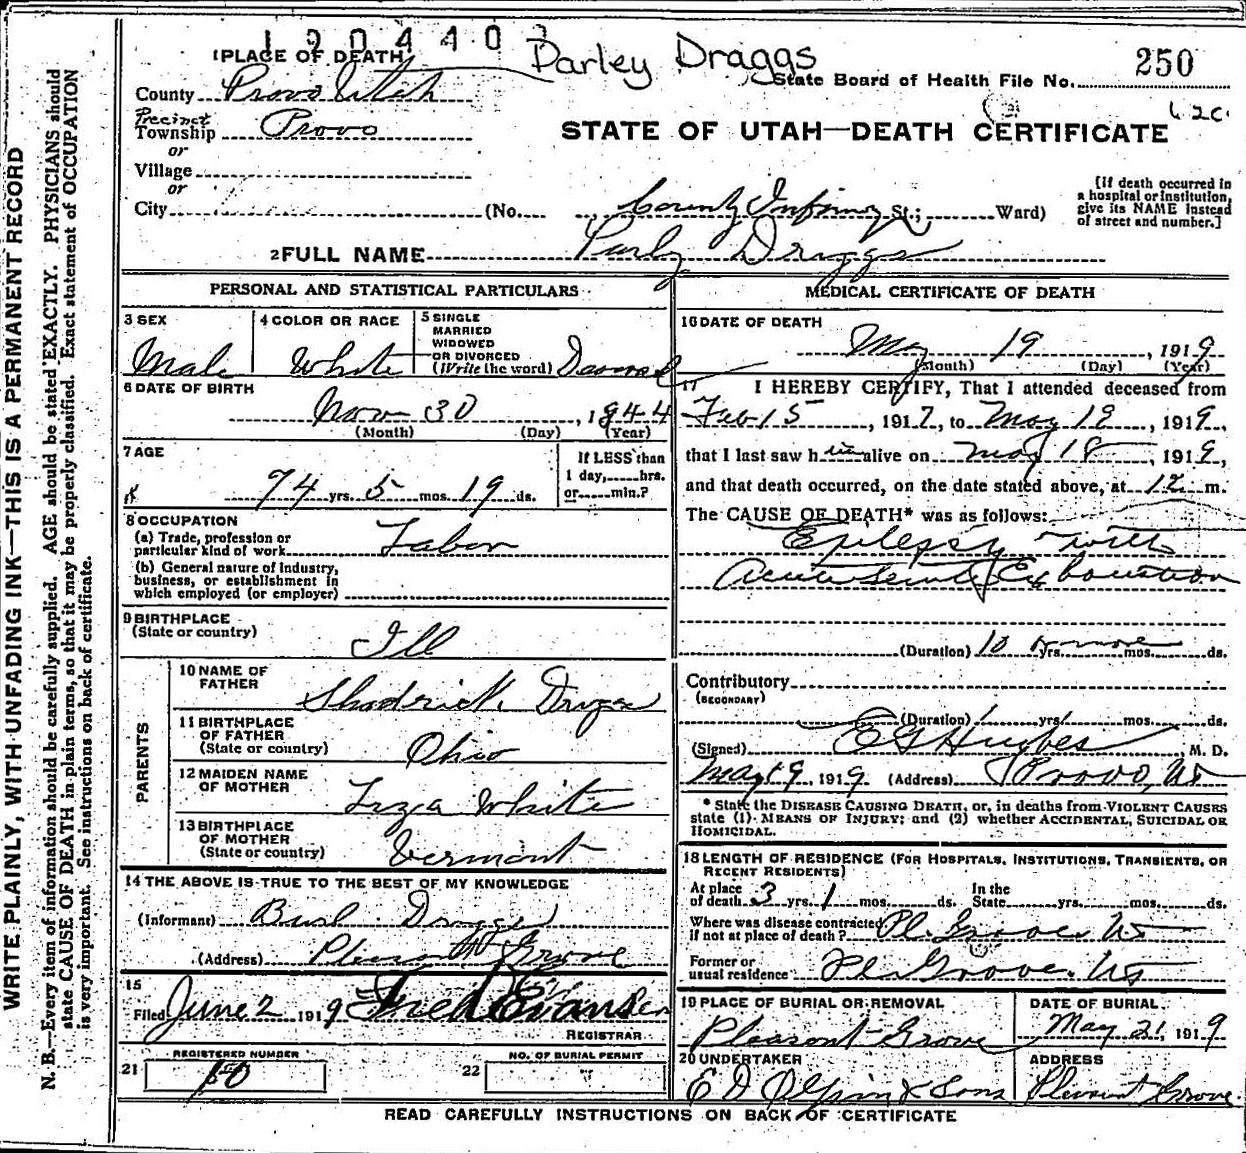 190440
Parley Draggs
1 PLACE OF DEATH
State Board of Health File No. 250
County Provo Utah
Precinct
Township Provo
or
Village
or
City (No. County Infirmy St.; Ward)
STATE OF UTAH—DEATH CERTIFICATE
[If death occurred in
a hospital or institution,
give its NAME instead
of street and number.]
2 FULL NAME Parly Draggs
WRITE PLAINLY, WITH UNFADING INK—THIS IS A PERMANENT RECORD
N. B.—Every item of information should be carefully supplied. AGE should be stated EXACTLY. PHYSICIANS should
state CAUSE OF DEATH in plain terms, so that it may be properly classified. Exact statement of OCCUPATION
is very important. See instructions on back of certificate.
PERSONAL AND STATISTICAL PARTICULARS
3 SEX
Male
4 COLOR OR RACE
White
5 SINGLE
MARRIED
WIDOWED
OR DIVORCED
(Write the word)
6 DATE OF BIRTH
Nov 30, 1844
(Month) (Day) (Year)
7 AGE
74 yrs. 5 mos. 19 ds.
If LESS than
1 day, hrs.
or min.?
8 OCCUPATION
(a) Trade, profession or
particular kind of work Labor
(b) General nature of Industry,
business, or establishment in
which employed (or employer)
9 BIRTHPLACE
(State or country)
Ill
PARENTS
10 NAME OF
FATHER
Shadrick
11 BIRTHPLACE
OF FATHER
(State or country)
Ohio
12 MAIDEN NAME
OF MOTHER
White
13 BIRTHPLACE
OF MOTHER
(State or country)
Vermont
14 THE ABOVE IS TRUE TO THE BEST OF MY KNOWLEDGE
(Informant) Draggs
(Address) Pleasant Grove
15
Filed June 2 1919 Fred Evans
REGISTRAR
21 REGISTERED NUMBER
22 NO. OF BURIAL PERMIT
MEDICAL CERTIFICATE OF DEATH
16 DATE OF DEATH
May 19, 1919
(Month) (Day) (Year)
17 I HEREBY CERTIFY, That I attended deceased from
Feb 15, 1917, to May 19, 1919,
that I last saw him alive on May 18, 1919,
and that death occurred, on the date stated above, at 12 m.
The CAUSE OF DEATH* was as follows:
Epilepsy with
Acute Senile Exhaustion
(Duration) 10 or more yrs. mos. ds.
Contributory
(SECONDARY)
(Duration) yrs. mos. ds.
(Signed) E G Hughes, M. D.
May 19, 1919 (Address) Provo, Ut
* State the DISEASE CAUSING DEATH, or, in deaths from VIOLENT CAUSES
state (1) MEANS OF INJURY; and (2) whether ACCIDENTAL, SUICIDAL OR
HOMICIDAL.
18 LENGTH OF RESIDENCE (FOR HOSPITALS, INSTITUTIONS, TRANSIENTS, OR
RECENT RESIDENTS)
At place
of death 3 yrs. 1 mos. ds.
In the
State yrs. mos. ds.
Where was disease contracted
if not at place of death? Pl. Grove Ut
Former or
usual residence Pl Grove. Ut
19 PLACE OF BURIAL OR REMOVAL
Pleasant Grove
DATE OF BURIAL
May 21, 1919
20 UNDERTAKER
E D Olpin & Sons
ADDRESS
Pleasant Grove
READ CAREFULLY INSTRUCTIONS ON BACK OF CERTIFICATE